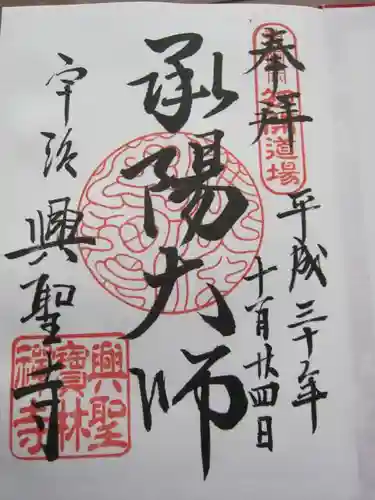 奉拝
初開道場
平成三十年
十一月廿四日
承陽大師
宇治
興聖寺
興聖
寶林
禅寺